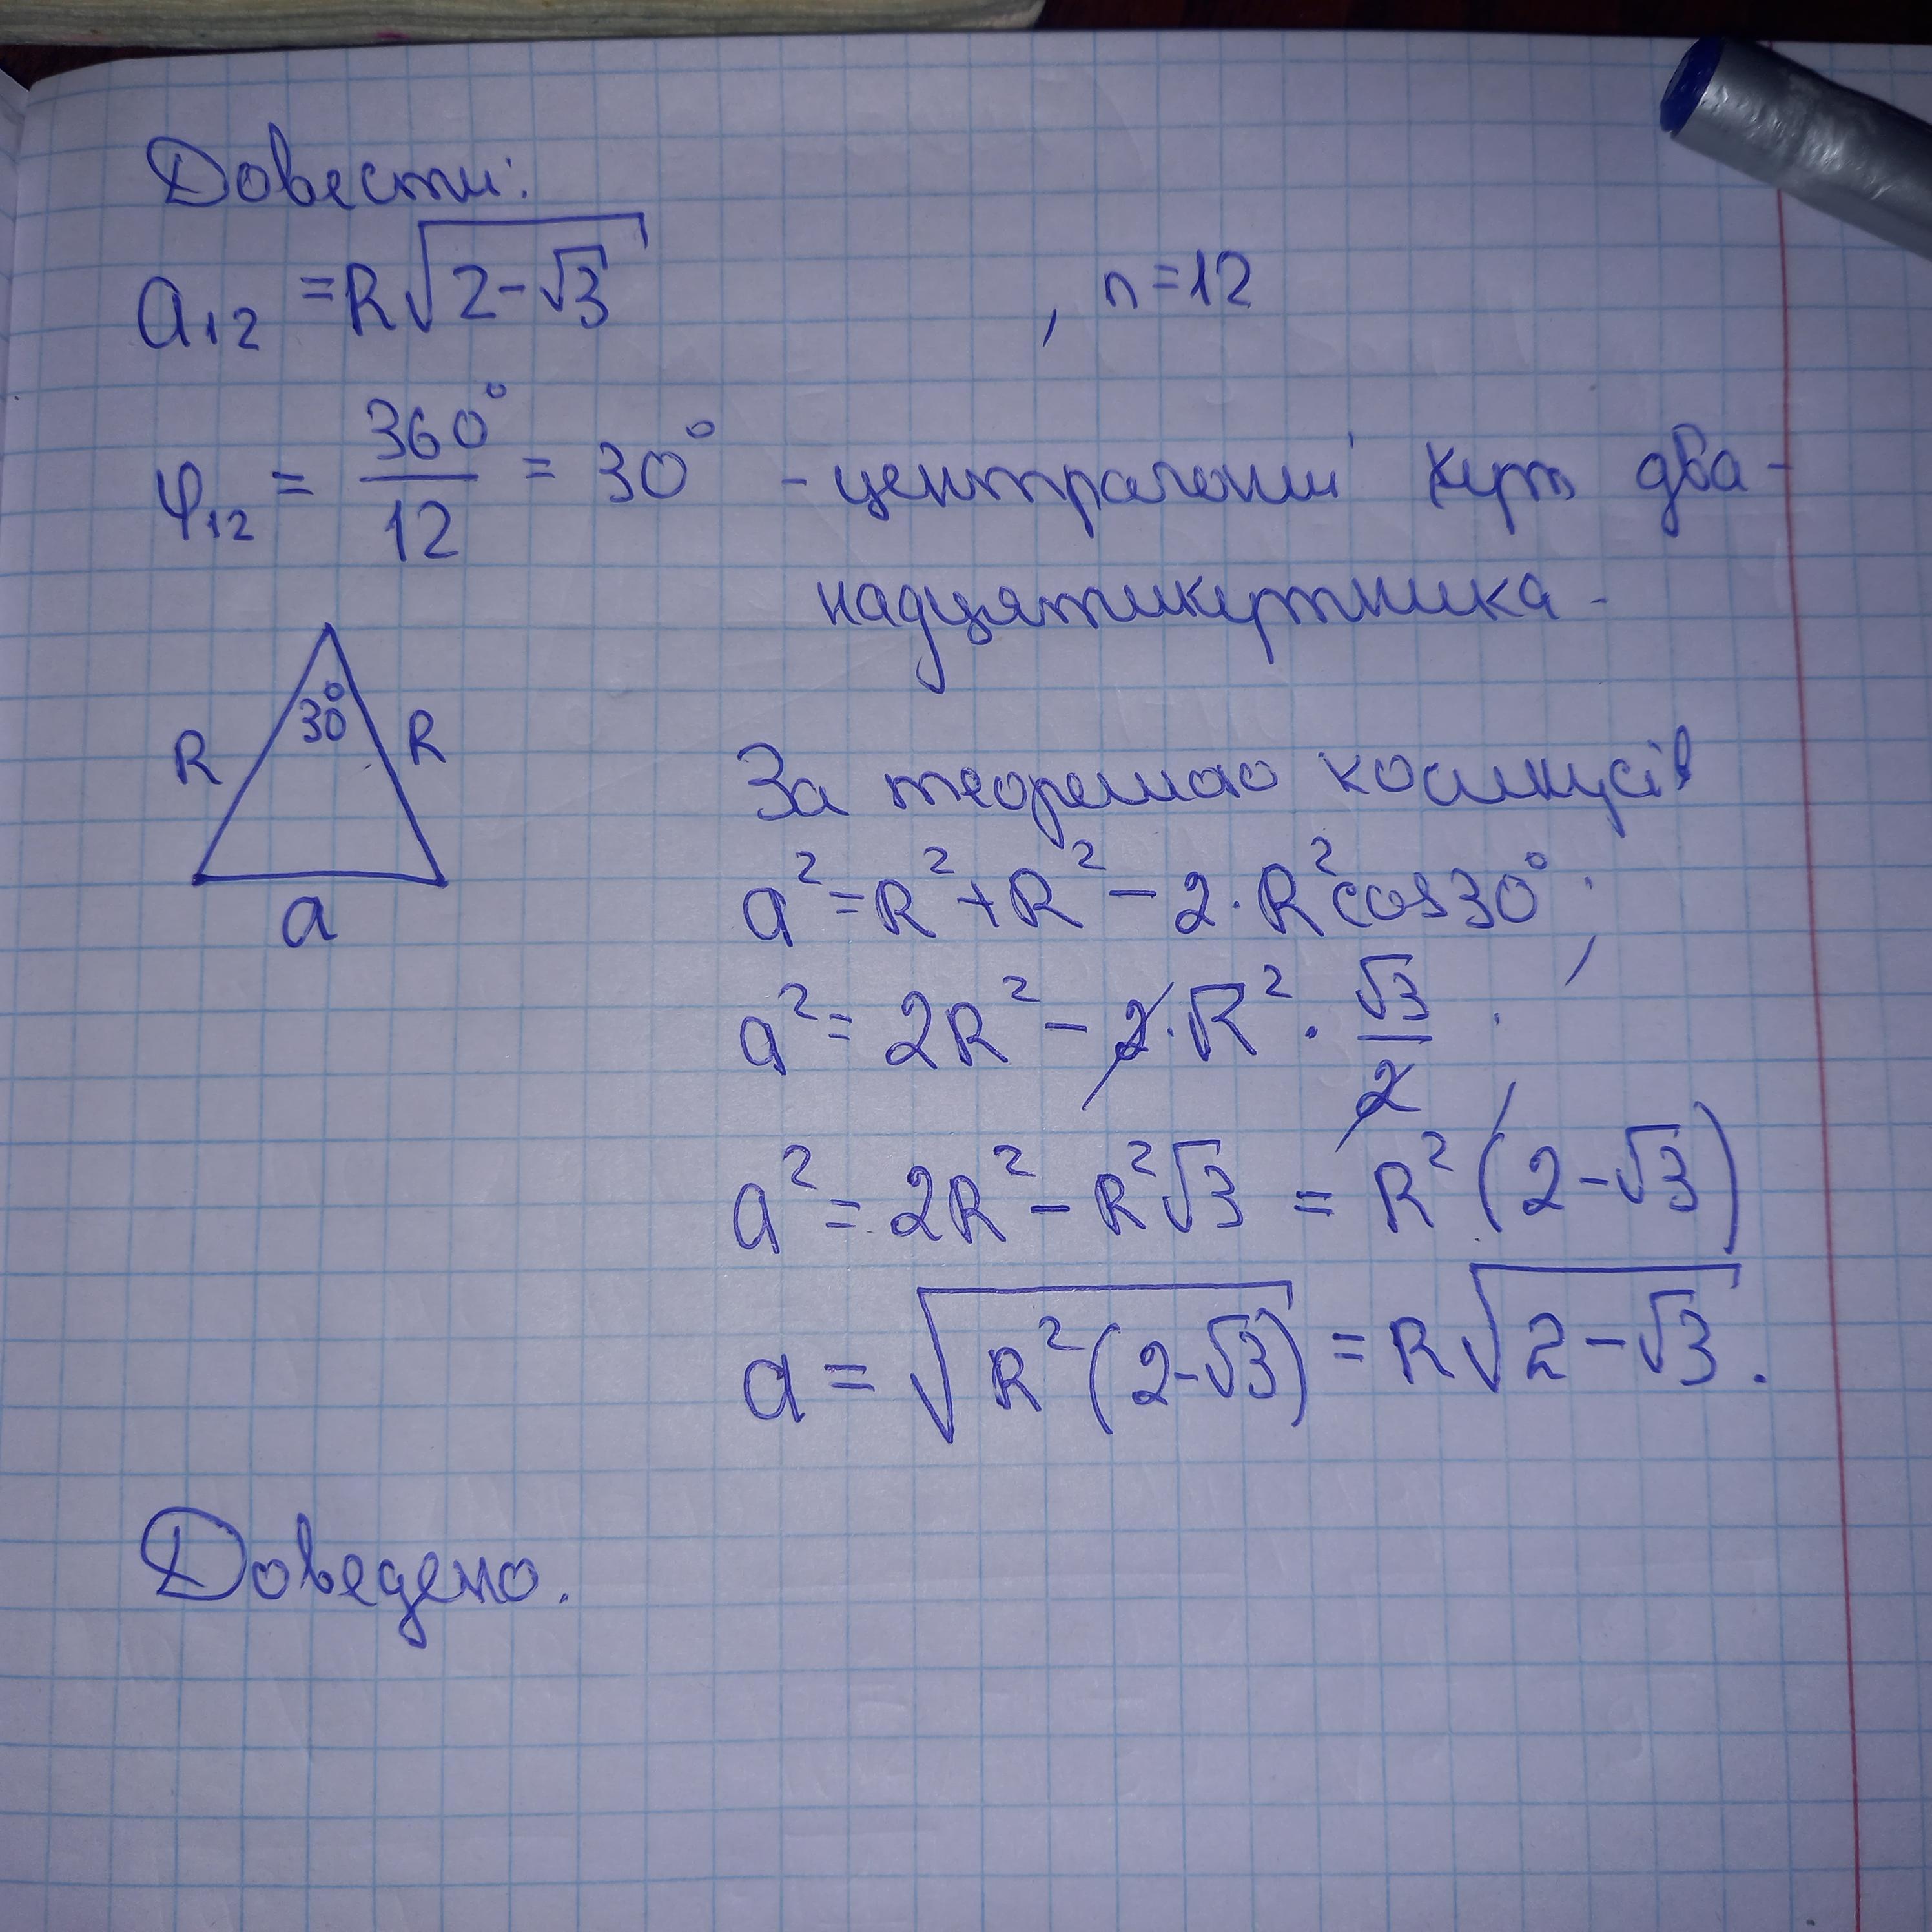 Довести:
a₁₂ = R√(2-√3) , n=12
φ₁₂ = 360°/12 = 30° - центральний кут два-
надцятикутника.
30°
R R
a
За теоремою косинусів
a² = R² + R² - 2·R² cos30°;
a² = 2R² - 2·R² · √3/2;
a² = 2R² - R²√3 = R²(2-√3)
a = √(R²(2-√3)) = R√(2-√3).
Доведено.